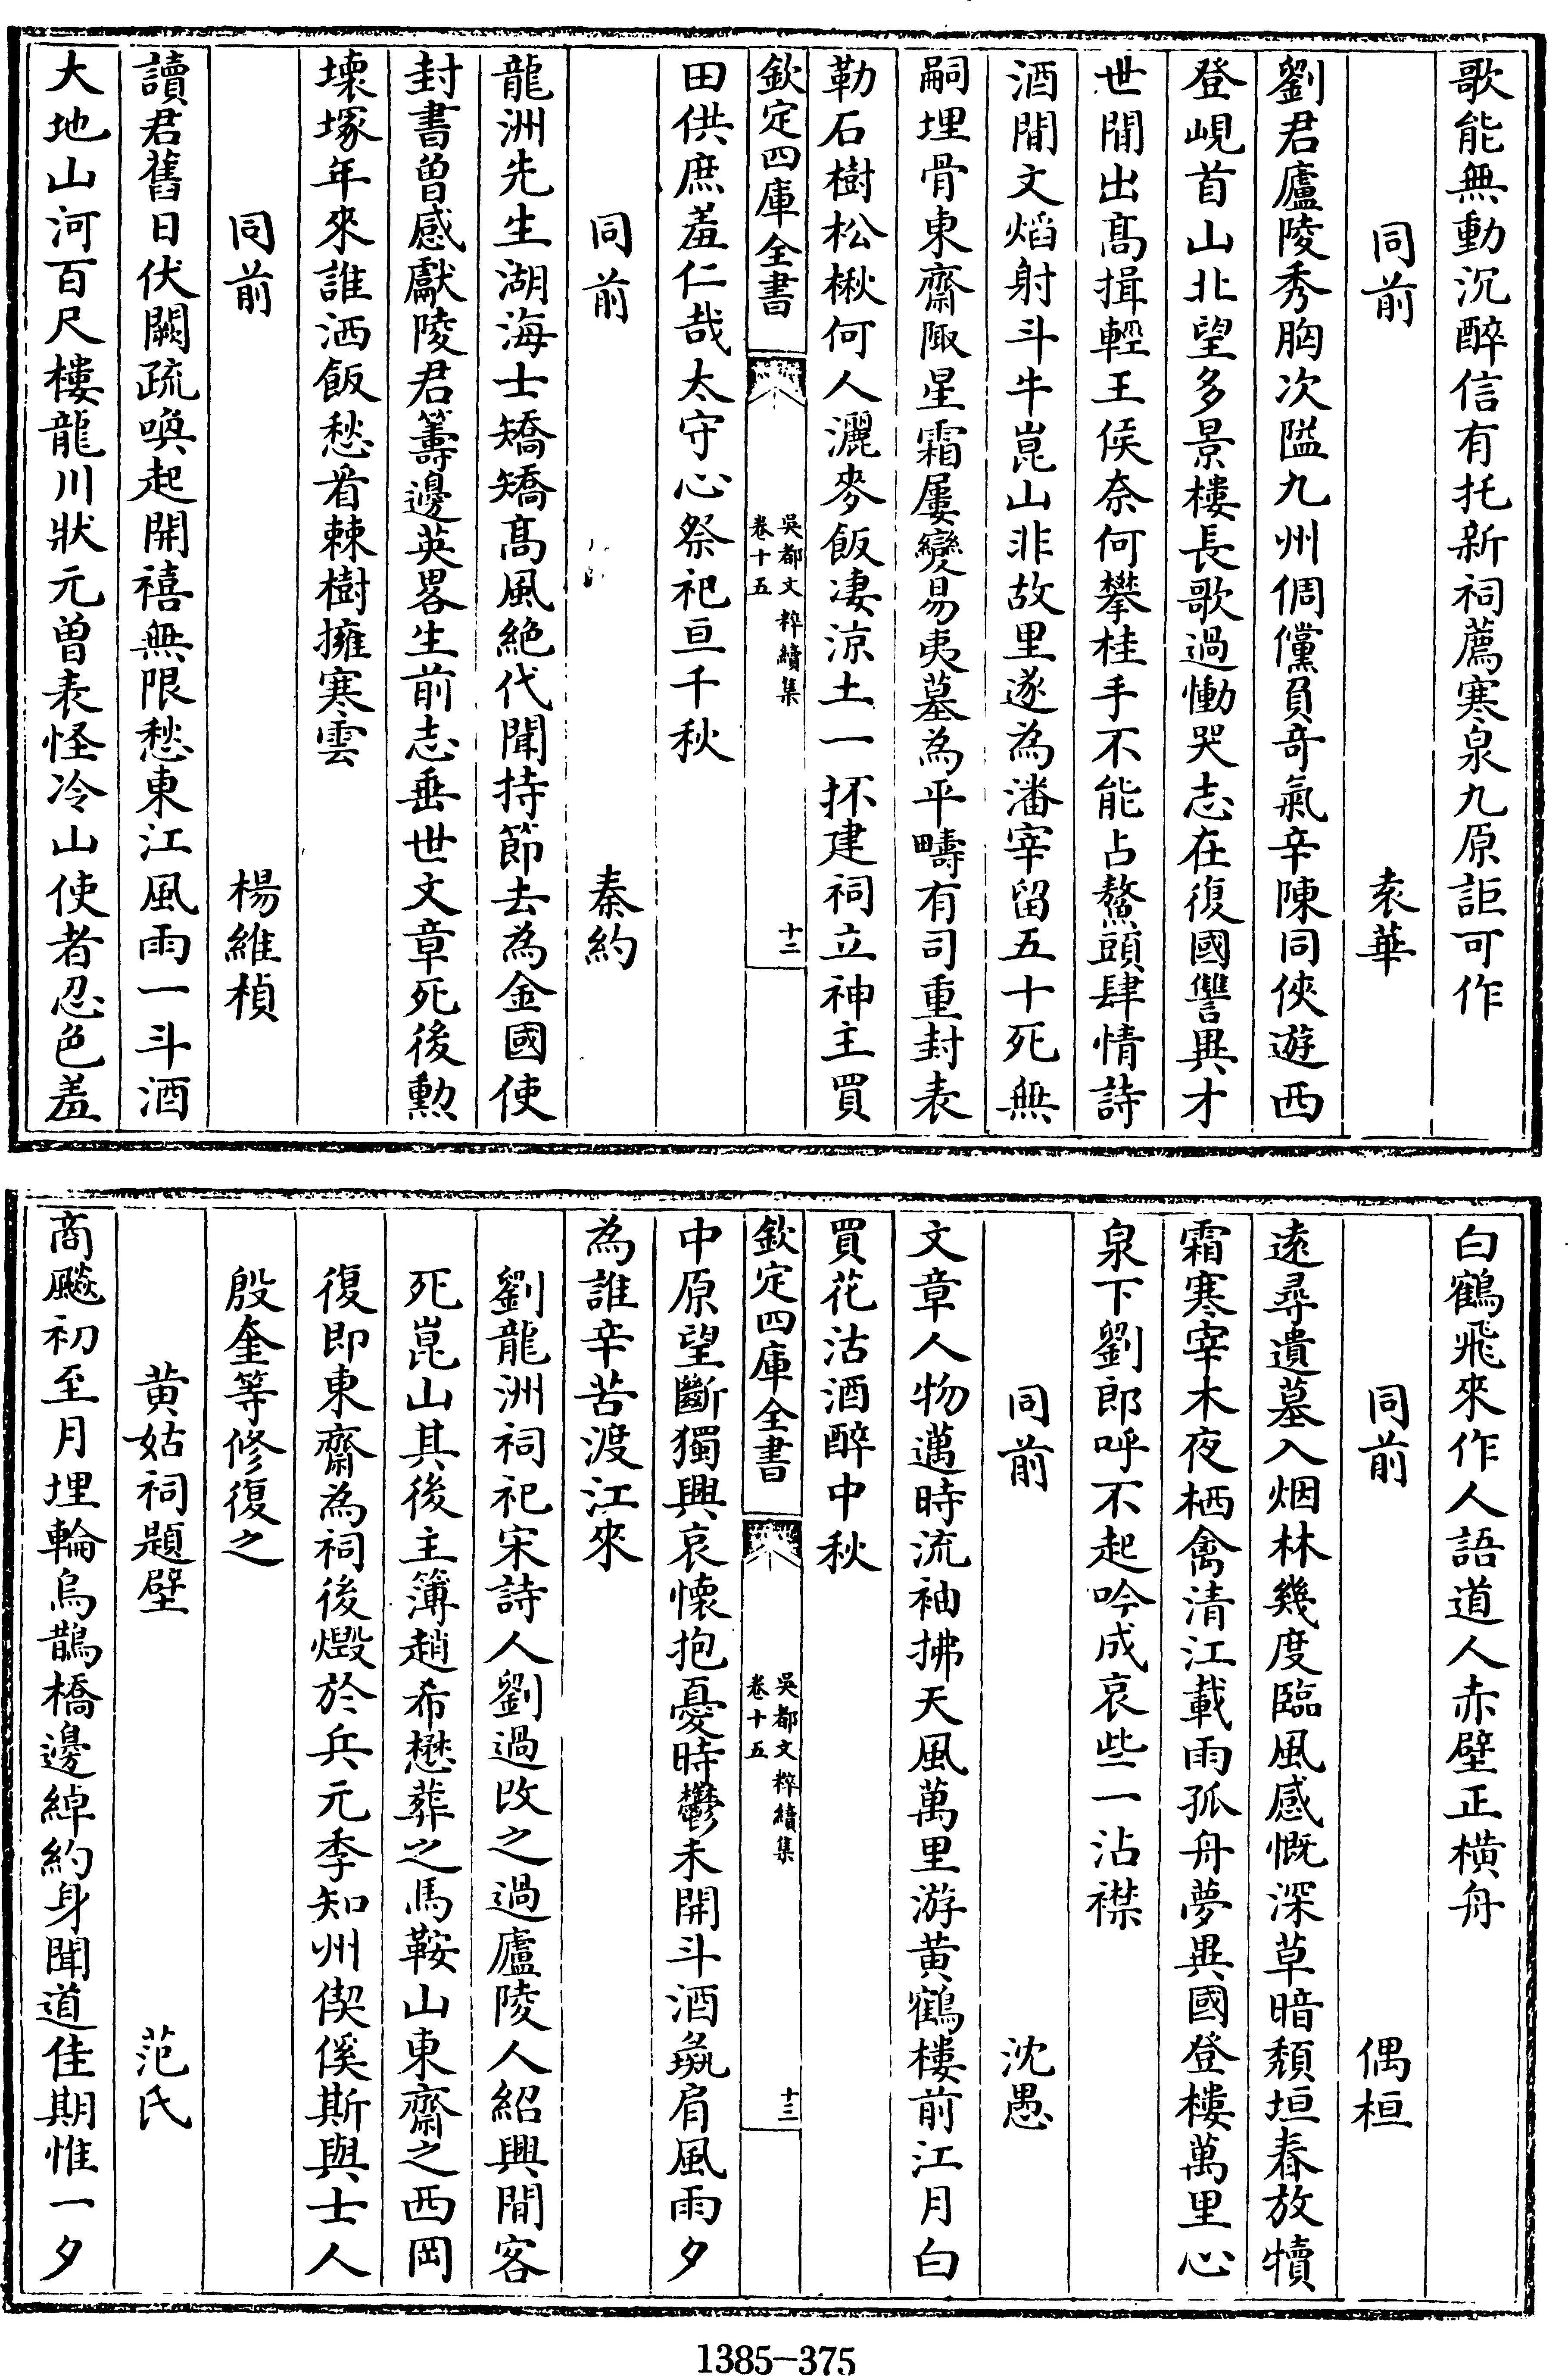 歌能無動沉醉信有托新祠薦寒泉九原詎可作
同前 袁華
劉君廬陵秀胸次隘九州倜儻負奇氣辛陳同俠遊西
登峴首山北望多景樓長歌過慟哭志在復國讐異才
世閒出髙揖輕王侯奈何攀桂手不能占鰲頭肆情詩
酒閒文熖射斗牛崑山非故里遂為潘宰留五十死無
嗣埋骨東齋陬星霜屢變易夷墓為平疇有司重封表
勒石樹松楸何人灑麥飯凄涼土一抔建祠立神主買
欽定四庫全書 吳都文粹續集 卷十五 十二
田供庶羞仁哉太守心祭祀亘千秋
同前 秦約
龍洲先生湖海士矯矯髙風絶代聞持節去為金國使
封書曽感獻陵君籌邊英畧生前志垂世文章死後勲
壊塚年來誰洒飯愁看棘樹擁寒雲
同前 楊維楨
讀君舊日伏闕疏喚起開禧無限愁東江風雨一斗酒
大地山河百尺樓龍川狀元曽表怪冷山使者忍色羞
白鶴飛來作人語道人赤壁正横舟
同前 偶桓
遠尋遺墓入烟林幾度臨風感慨深草暗頹垣春放犢
霜寒宰木夜栖禽清江載雨孤舟夢異國登樓萬里心
泉下劉郎呼不起吟成哀些一沾襟
同前 沈愚
文章人物邁時流袖拂天風萬里游黄鶴樓前江月白
買花沽酒醉中秋
欽定四庫全書 吳都文粹續集 卷十五 十三
中原望斷獨興哀懷抱憂時鬱未開斗酒彘肩風雨夕
為誰辛苦渡江來
劉龍洲祠祀宋詩人劉過改之過廬陵人紹興閒客
死崑山其後主簿趙希懋葬之馬鞍山東齋之西岡
復即東齋為祠後燬於兵元季知州偰傒斯與士人
殷奎等修復之
黄姑祠題壁 范氏
商飈初至月埋輪烏鵲橋邊綽約身聞道佳期惟一夕
1385-375